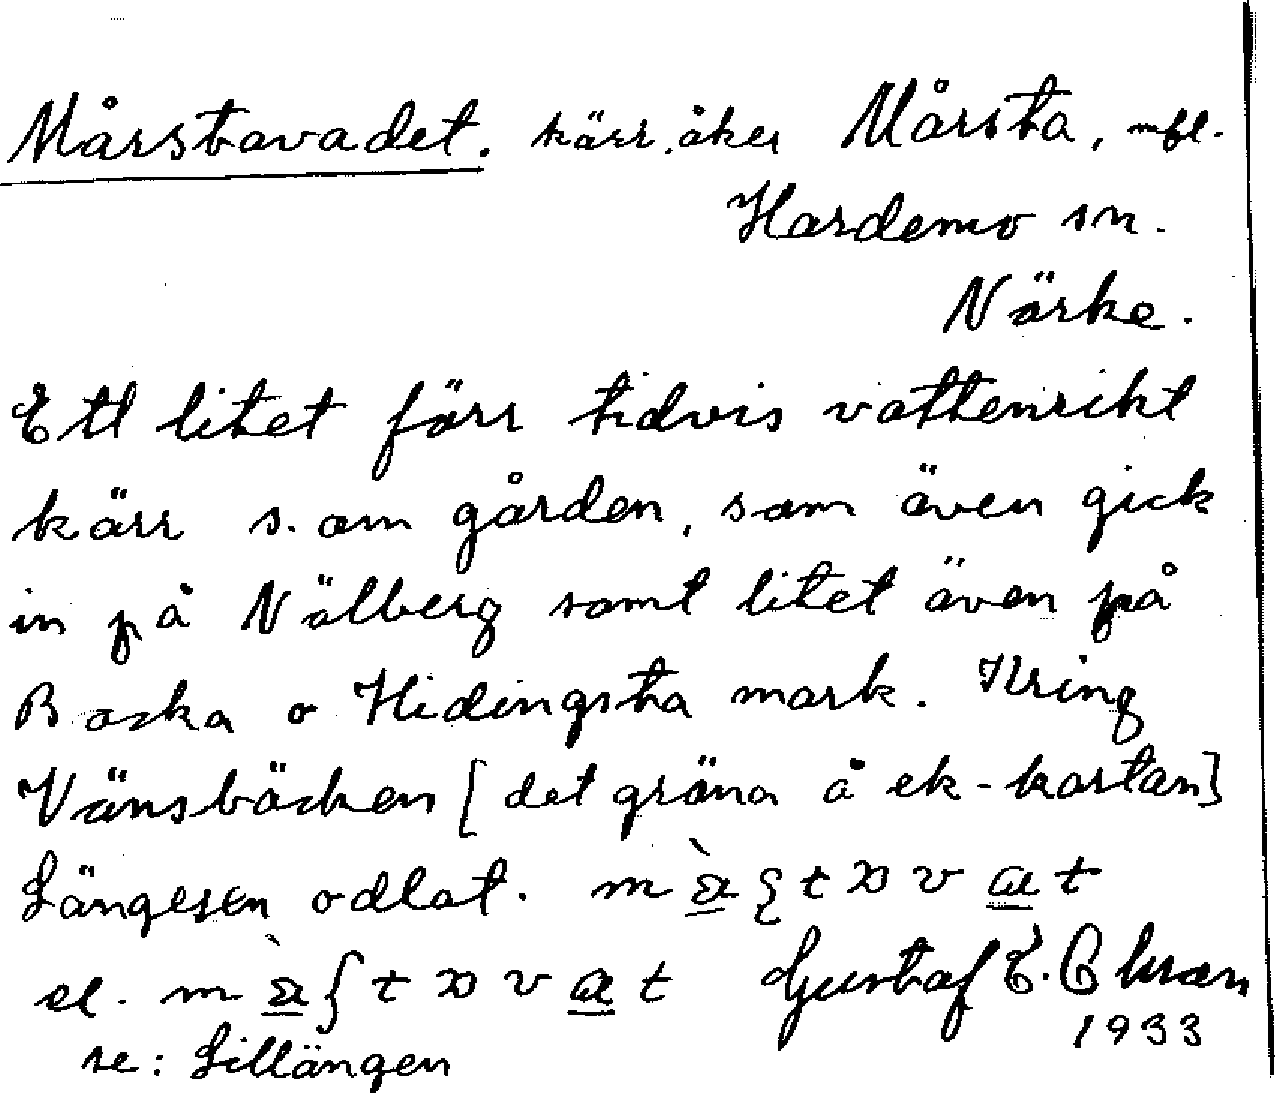 Mårstavadet. kärr, åker Mårsta, mfl.
Hardemo sn.
Närke.
Ett litet förr tidvis vattenrikt
kärr s. om gården, som även gick
in på Nälberg samt litet även på
Backa o Hidingsta mark. Kring
Vänsbäcken [det gröna å ek-kartan]
Längesen odlat.
el.
Gustaf E.
1933
se: Lillängen